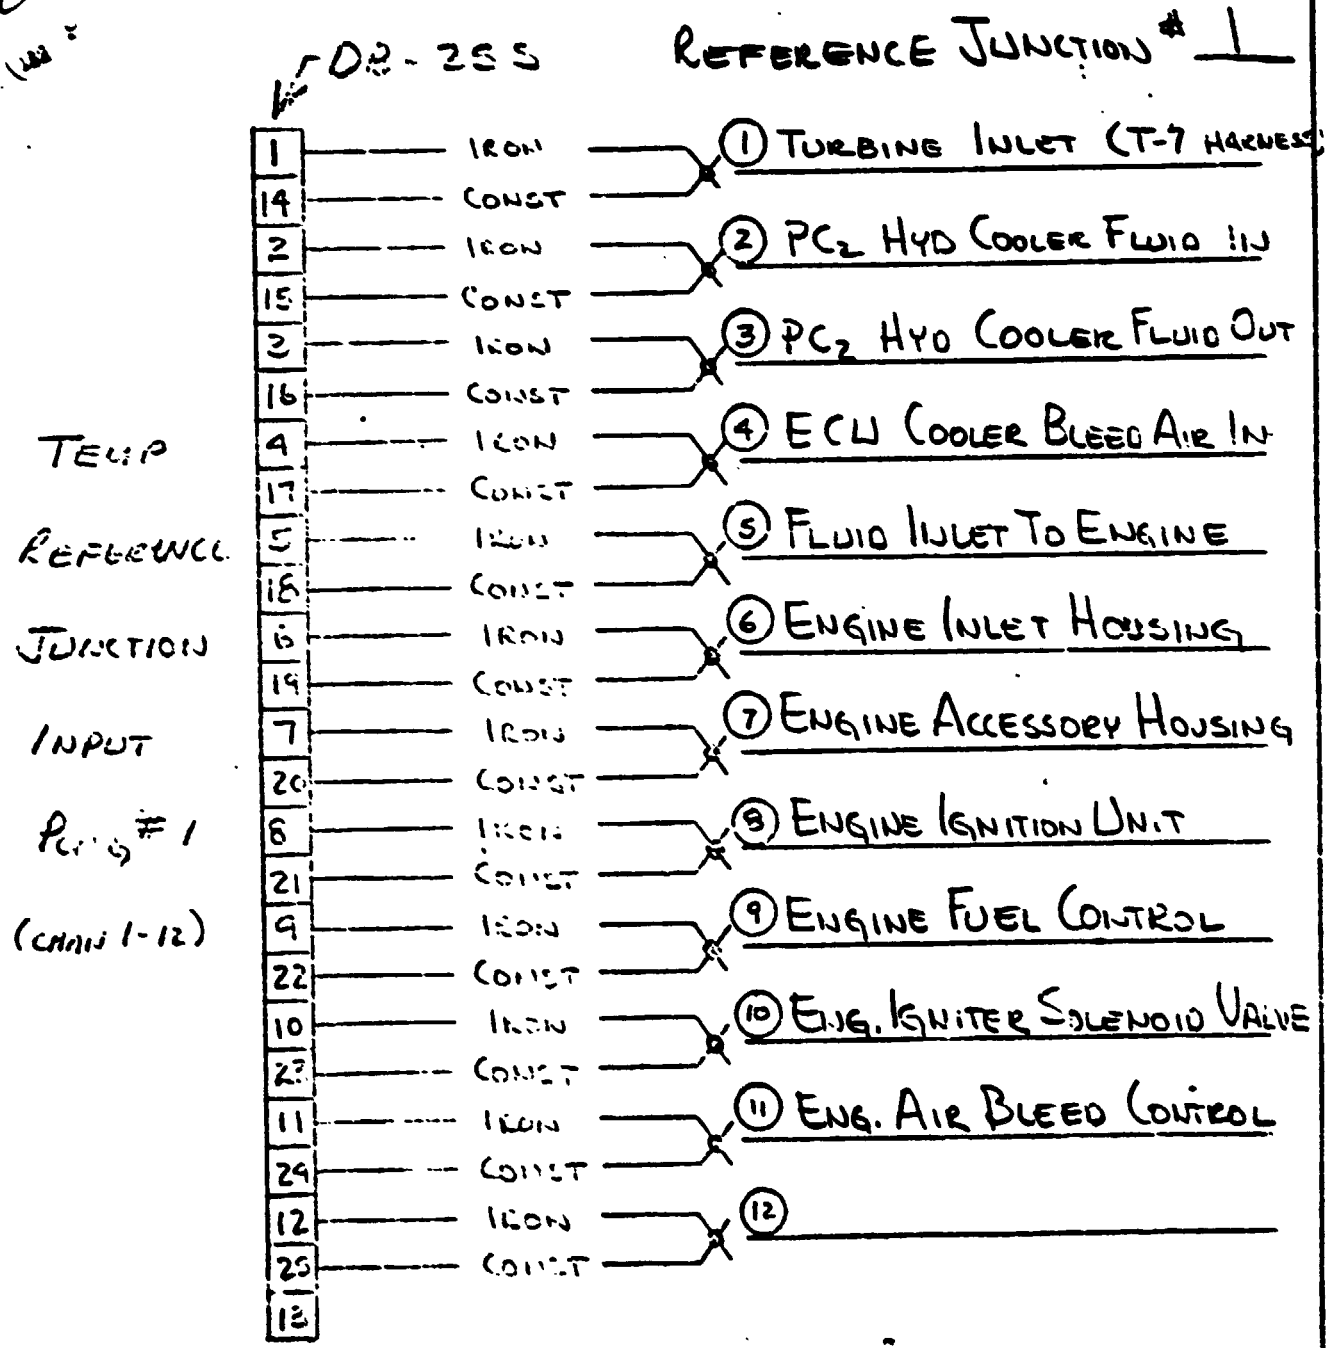 DB-25S
REFERENCE JUNCTION # 1
1 IRON
14 CONST
① TURBINE INLET (T-7 HARNESS)
2 IRON
15 CONST
② PC2 HYD COOLER FLUID IN
3 IRON
16 CONST
③ PC2 HYD COOLER FLUID OUT
4 IRON
17 CONST
④ ECU COOLER BLEED AIR IN
5 IRON
18 CONST
⑤ FLUID INLET TO ENGINE
6 IRON
19 CONST
⑥ ENGINE INLET HOUSING
7 IRON
20 CONST
⑦ ENGINE ACCESSORY HOUSING
8 IRON
21 CONST
⑧ ENGINE IGNITION UNIT
9 IRON
22 CONST
⑨ ENGINE FUEL CONTROL
10 IRON
23 CONST
⑩ ENG. IGNITER SOLENOID VALVE
11 IRON
24 CONST
⑪ ENG. AIR BLEED CONTROL
12 IRON
25 CONST
⑫
13
TEMP
REFERENCE
JUNCTION
INPUT
# 1
(CHAN 1-12)